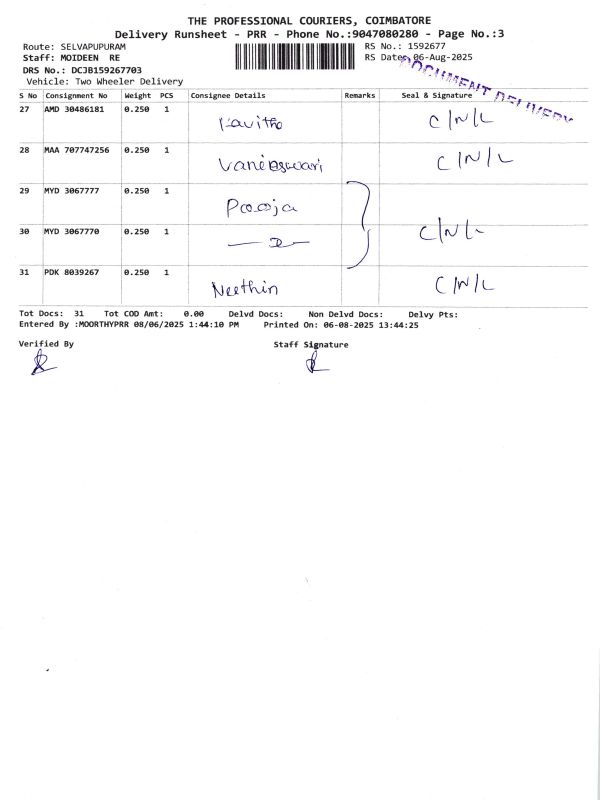 THE PROFESSIONAL COURIERS, COIMBATORE
Delivery Runsheet - PRR - Phone No.:9047080280 - Page No.:3
Route: SELVAPUPURAM RS No.: 1592677
Staff: MOIDEEN RE RS Date: 06-Aug-2025
DRS No.: DCJB159267703
Vehicle: Two Wheeler Delivery
DOCUMENT DELIVERY
S No Consignment No Weight PCS Consignee Details Remarks Seal & Signature
27 AMD 30486181 0.250 1 Kavitha C/N/L
28 MAA 707747256 0.250 1 C/N/L
29 MYD 3067777 0.250 1 Pooja
30 MYD 3067770 0.250 1 C/N/L
31 PDK 8039267 0.250 1 Neethin C/N/L
Tot Docs: 31 Tot COD Amt: 0.00 Delvd Docs: Non Delvd Docs: Delvy Pts:
Entered By :MOORTHYPRR 08/06/2025 1:44:10 PM Printed On: 06-08-2025 13:44:25
Verified By Staff Signature